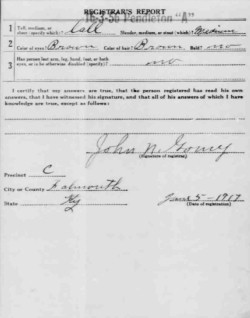 REGISTRAR'S REPORT
16-3-56 Pendleton "A"
1 Tall, medium, or short (specify which)? Tall Slender, medium, or stout (which)? Medium
2 Color of eyes? Brown Color of hair? Brown Bald? no
3 Has person lost arm, leg, hand, foot, or both eyes, or is he otherwise disabled (specify)? no
I certify that my answers are true, that the person registered has read his own answers, that I have witnessed his signature, and that all of his answers of which I have knowledge are true, except as follows:
John N.
(Signature of registrar)
Precinct C
City or County Falmouth
State Ky
June 5 - 1917
(Date of registration)